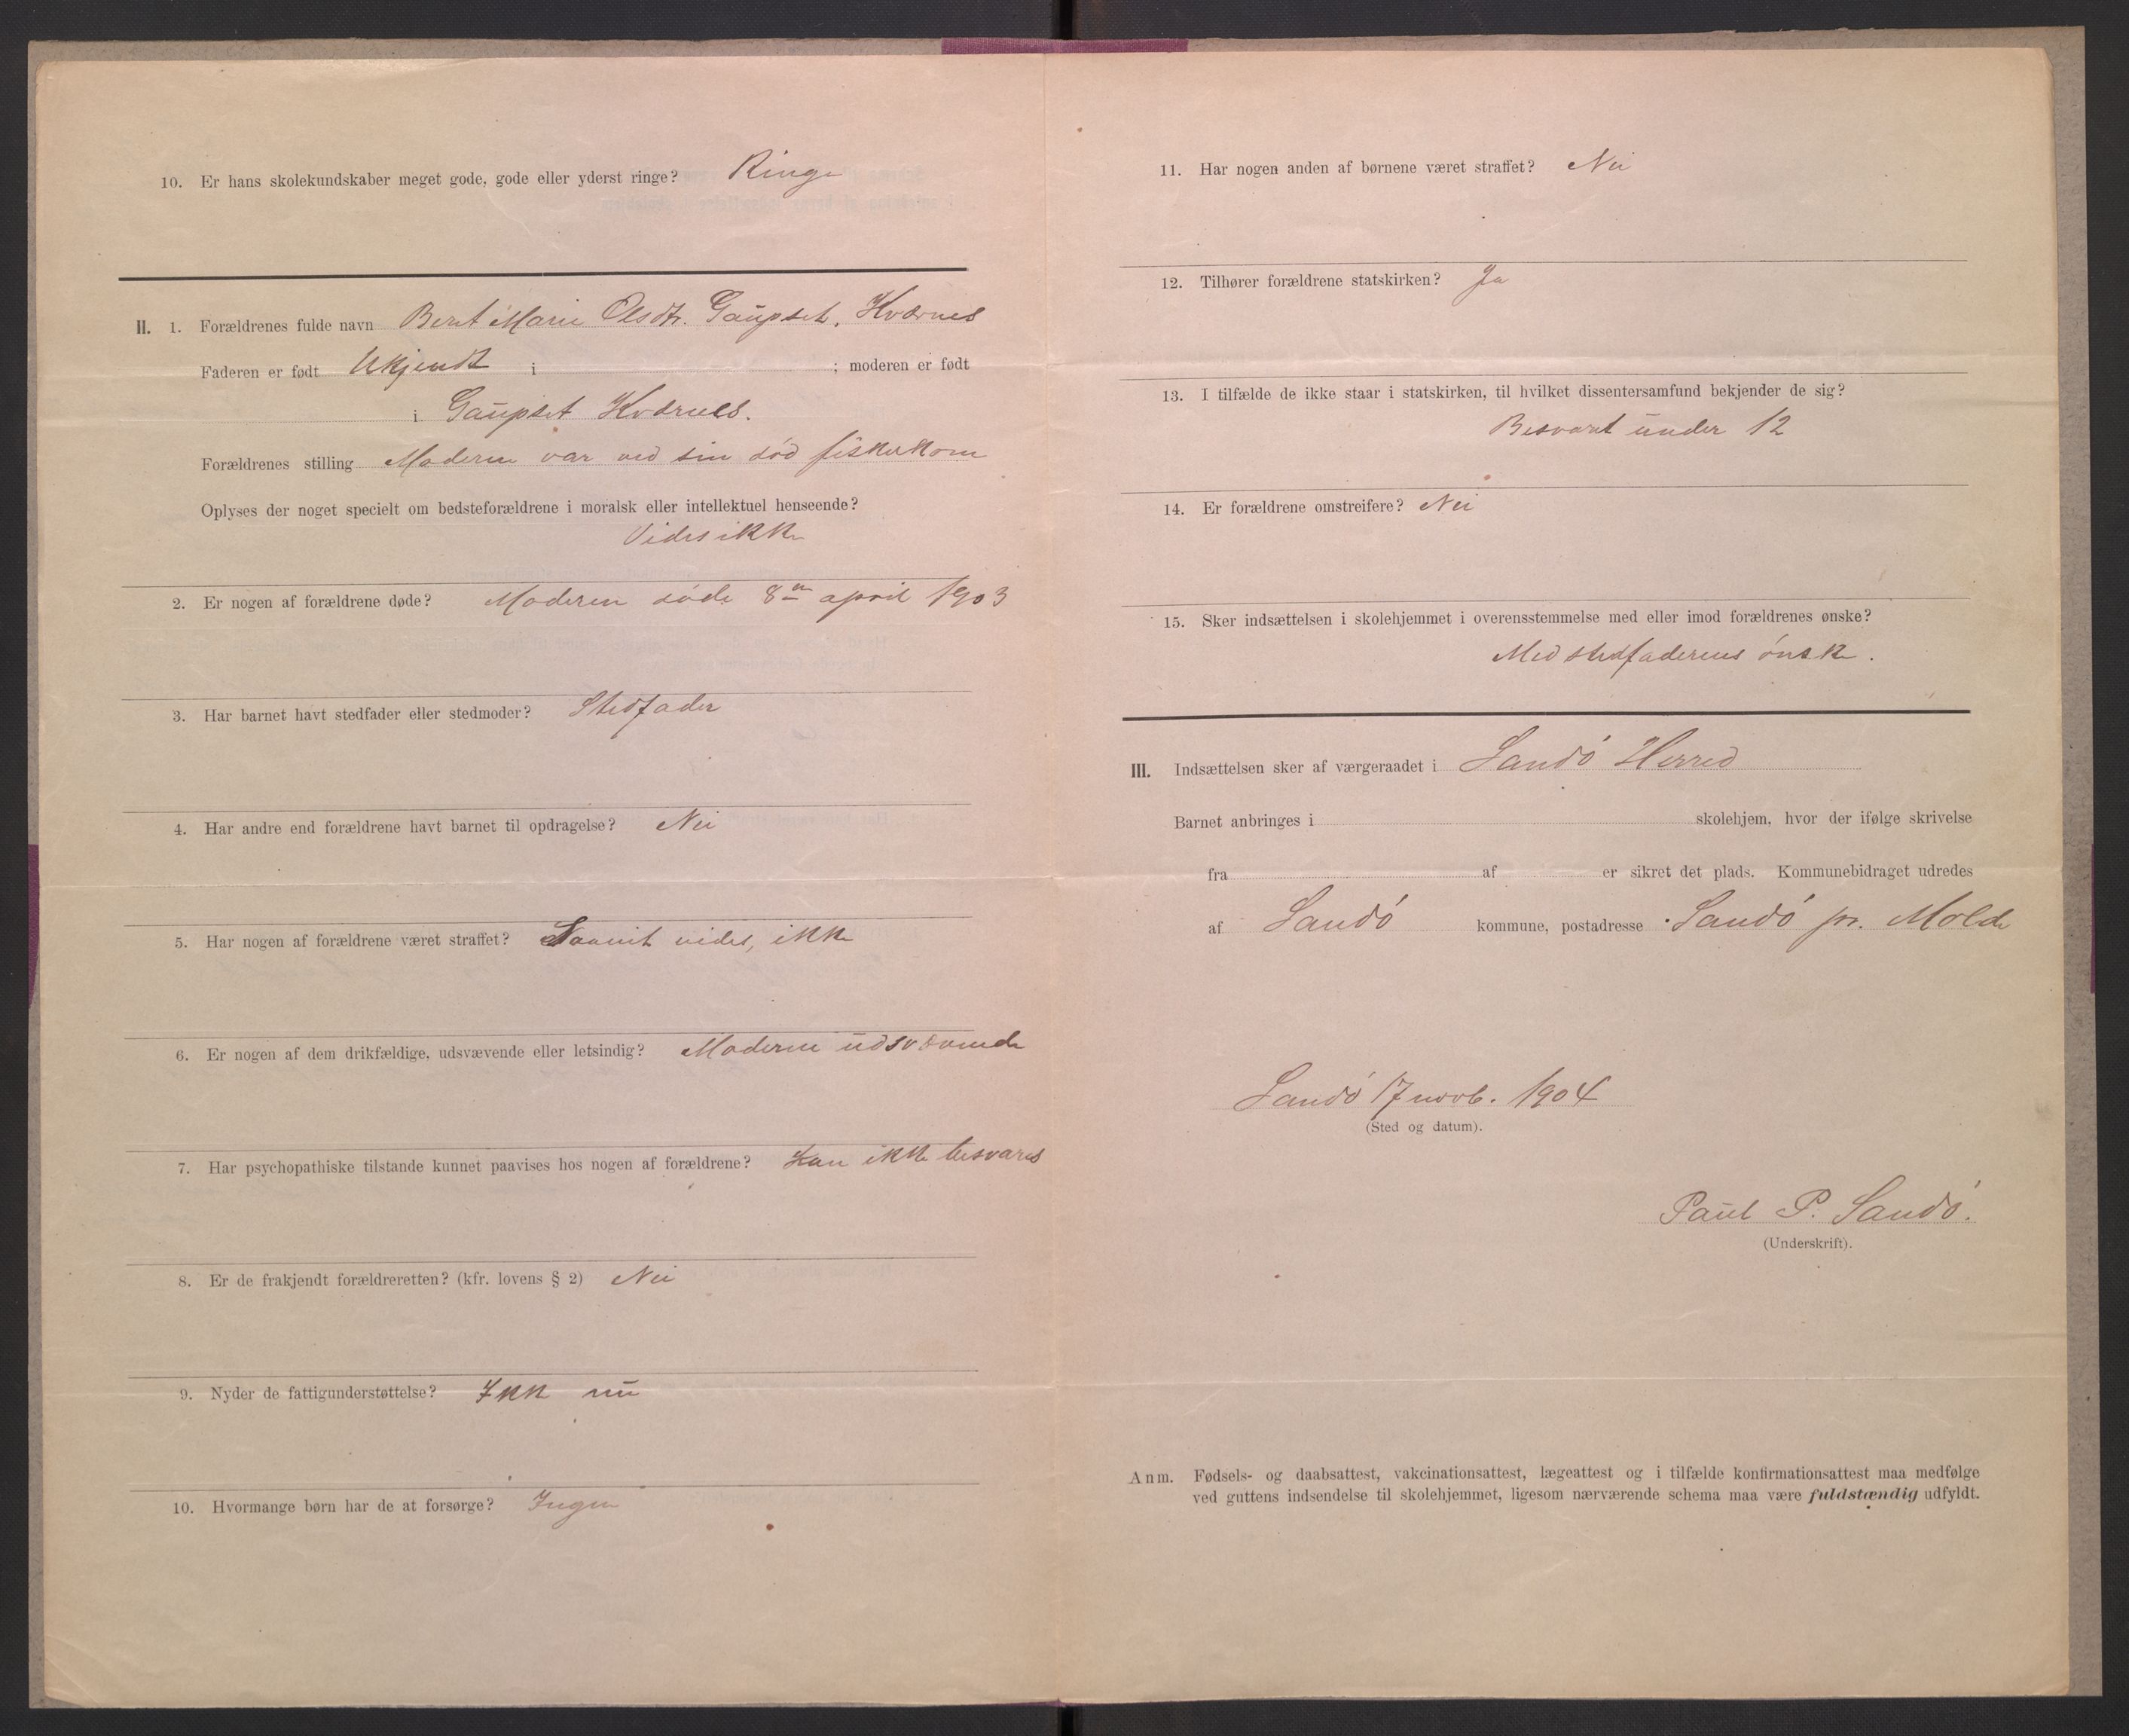 10. Er hans skolekundskaber meget gode, gode eller yderst ringe? Ringe
II. 1. Forældrenes fulde navn Berit Marie Olsdtr. Gaupset, Kværnes
Faderen er født Ukjendt i ; moderen er født
i Gaupset Kværnes.
Forældrenes stilling Moderen var ved sin død fiskerkone
Oplyses der noget specielt om bedsteforældrene i moralsk eller intellektuel henseende?
Vides ikke
2. Er nogen af forældrene døde? Moderen døde 8de april 1903
3. Har barnet havt stedfader eller stedmoder? Stedfader
4. Har andre end forældrene havt barnet til opdragelse? Nei
5. Har nogen af forældrene været straffet? Saavit vides, ikke
6. Er nogen af dem drikfældige, udsvævende eller letsindig? Moderen udsvævende
7. Har psychopathiske tilstande kunnet paavises hos nogen af forældrene? Kan ikke besvares
8. Er de frakjendt forældreretten? (kfr. lovens § 2) Nei
9. Nyder de fattigunderstøttelse? Ikke nu
10. Hvormange børn har de at forsørge? Ingen
11. Har nogen anden af børnene været straffet? Nei
12. Tilhører forældrene statskirken? Ja
13. I tilfælde de ikke staar i statskirken, til hvilket dissentersamfund bekjender de sig?
Besvaret under 12
14. Er forældrene omstreifere? Nei
15. Sker indsættelsen i skolehjemmet i overensstemmelse med eller imod forældrenes ønske?
Med stedfaderens ønske.
III. Indsættelsen sker af værgeraadet i Sandø Herred
Barnet anbringes i skolehjem, hvor der ifølge skrivelse
fra af er sikret det plads. Kommunebidraget udredes
af Sandø kommune, postadresse Sandø pr. Molde
Sandø 17 novb. 1904
(Sted og datum).
Paul P. Sandø.
(Underskrift).
Anm. Fødsels- og daabsattest, vakcinationsattest, lægeattest og i tilfælde konfirmationsattest maa medfølge
ved guttens indsendelse til skolehjemmet, ligesom nærværende schema maa være fuldstændig udfyldt.